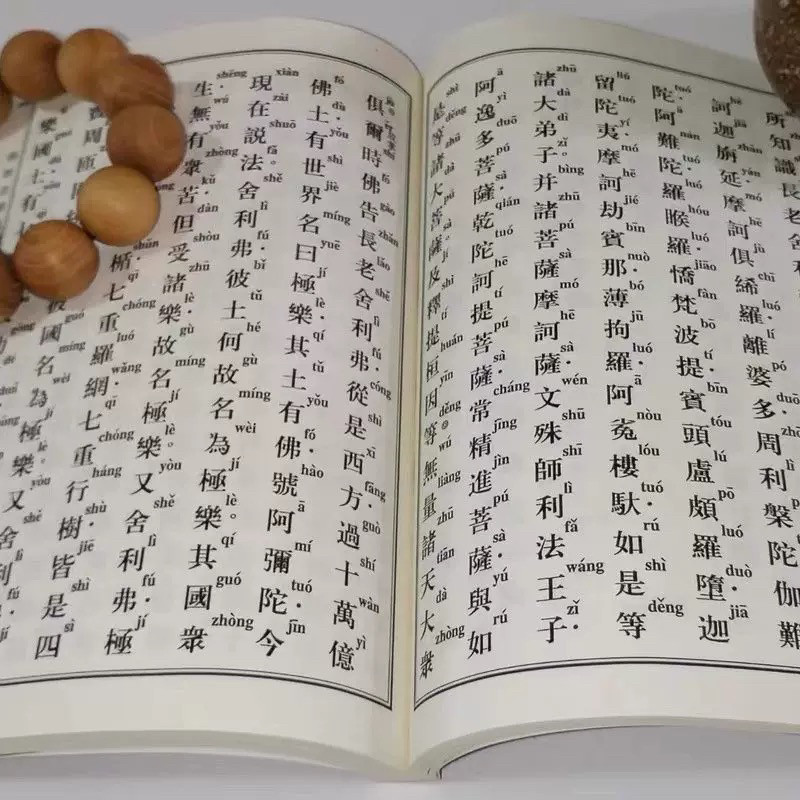 所知識長老舍
訶迦旃延摩訶俱絺羅離婆多周利槃陀伽難
陀阿難陀羅睺羅憍梵波提賓頭盧頗羅墮迦
留陀夷摩訶劫賓那薄拘羅阿㝹樓馱如是等
諸大弟子。并諸菩薩摩訶薩。文殊師利法王子。
阿逸多菩薩乾陀訶提菩薩。常精進菩薩。與如
是等諸大菩薩。及釋提桓因等。無量諸天大衆
俱爾時佛告長老舍利弗。從是西方。過十萬億
佛土。有世界名曰極樂。其土有佛。號阿彌陀。今
現在説法。舍利弗。彼土何故名為極樂。其國衆
生。無有衆苦。但受諸樂。故名極樂。又舍利弗。極
楯七重羅網。七重行樹。皆是四
周匝 國名為極樂。又舍利
樂國土有